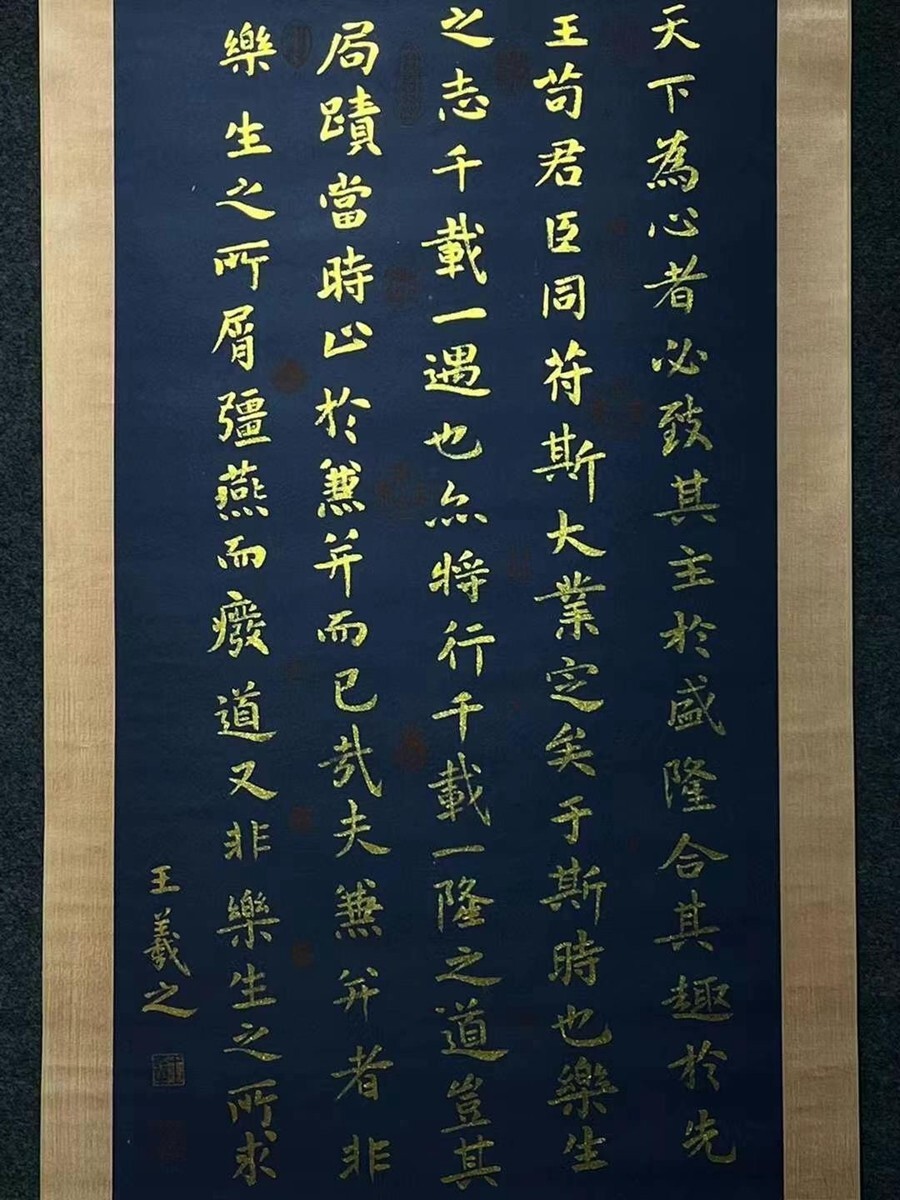 天下為心者必致其主於盛隆合其趣於先
王苟君臣同符斯大業定矣于斯時也樂生
之志千載一遇也亦將行千載一隆之道豈其
局蹟當時止於兼并而已哉夫兼并者非
樂生之所屑彊燕而廢道又非樂生之所求
王羲之